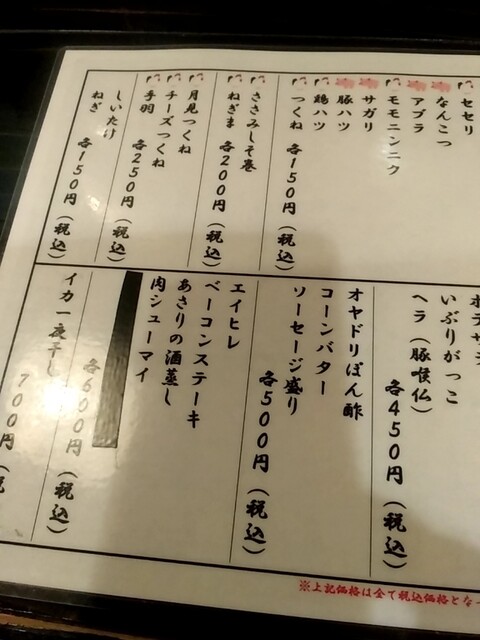 セセリ
なんこつ
アブラ
モモニンニク
サガリ
豚ハツ
鶏ハツ
つくね
各150円（税込）
ささみしそ巻
ねぎま
各200円（税込）
月見つくね
チーズつくね
手羽
各250円（税込）
しいたけ
ねぎ
各150円（税込）
ポテサラ
いぶりがっこ
ヘラ（豚喉仏）
各450円（税込）
オヤドリぽん酢
コーンバター
ソーセージ盛り
各500円（税込）
エイヒレ
ベーコンステーキ
あさりの酒蒸し
肉シューマイ
各600円（税込）
イカ一夜干し
700円（税
※上記価格は全て税込価格とな